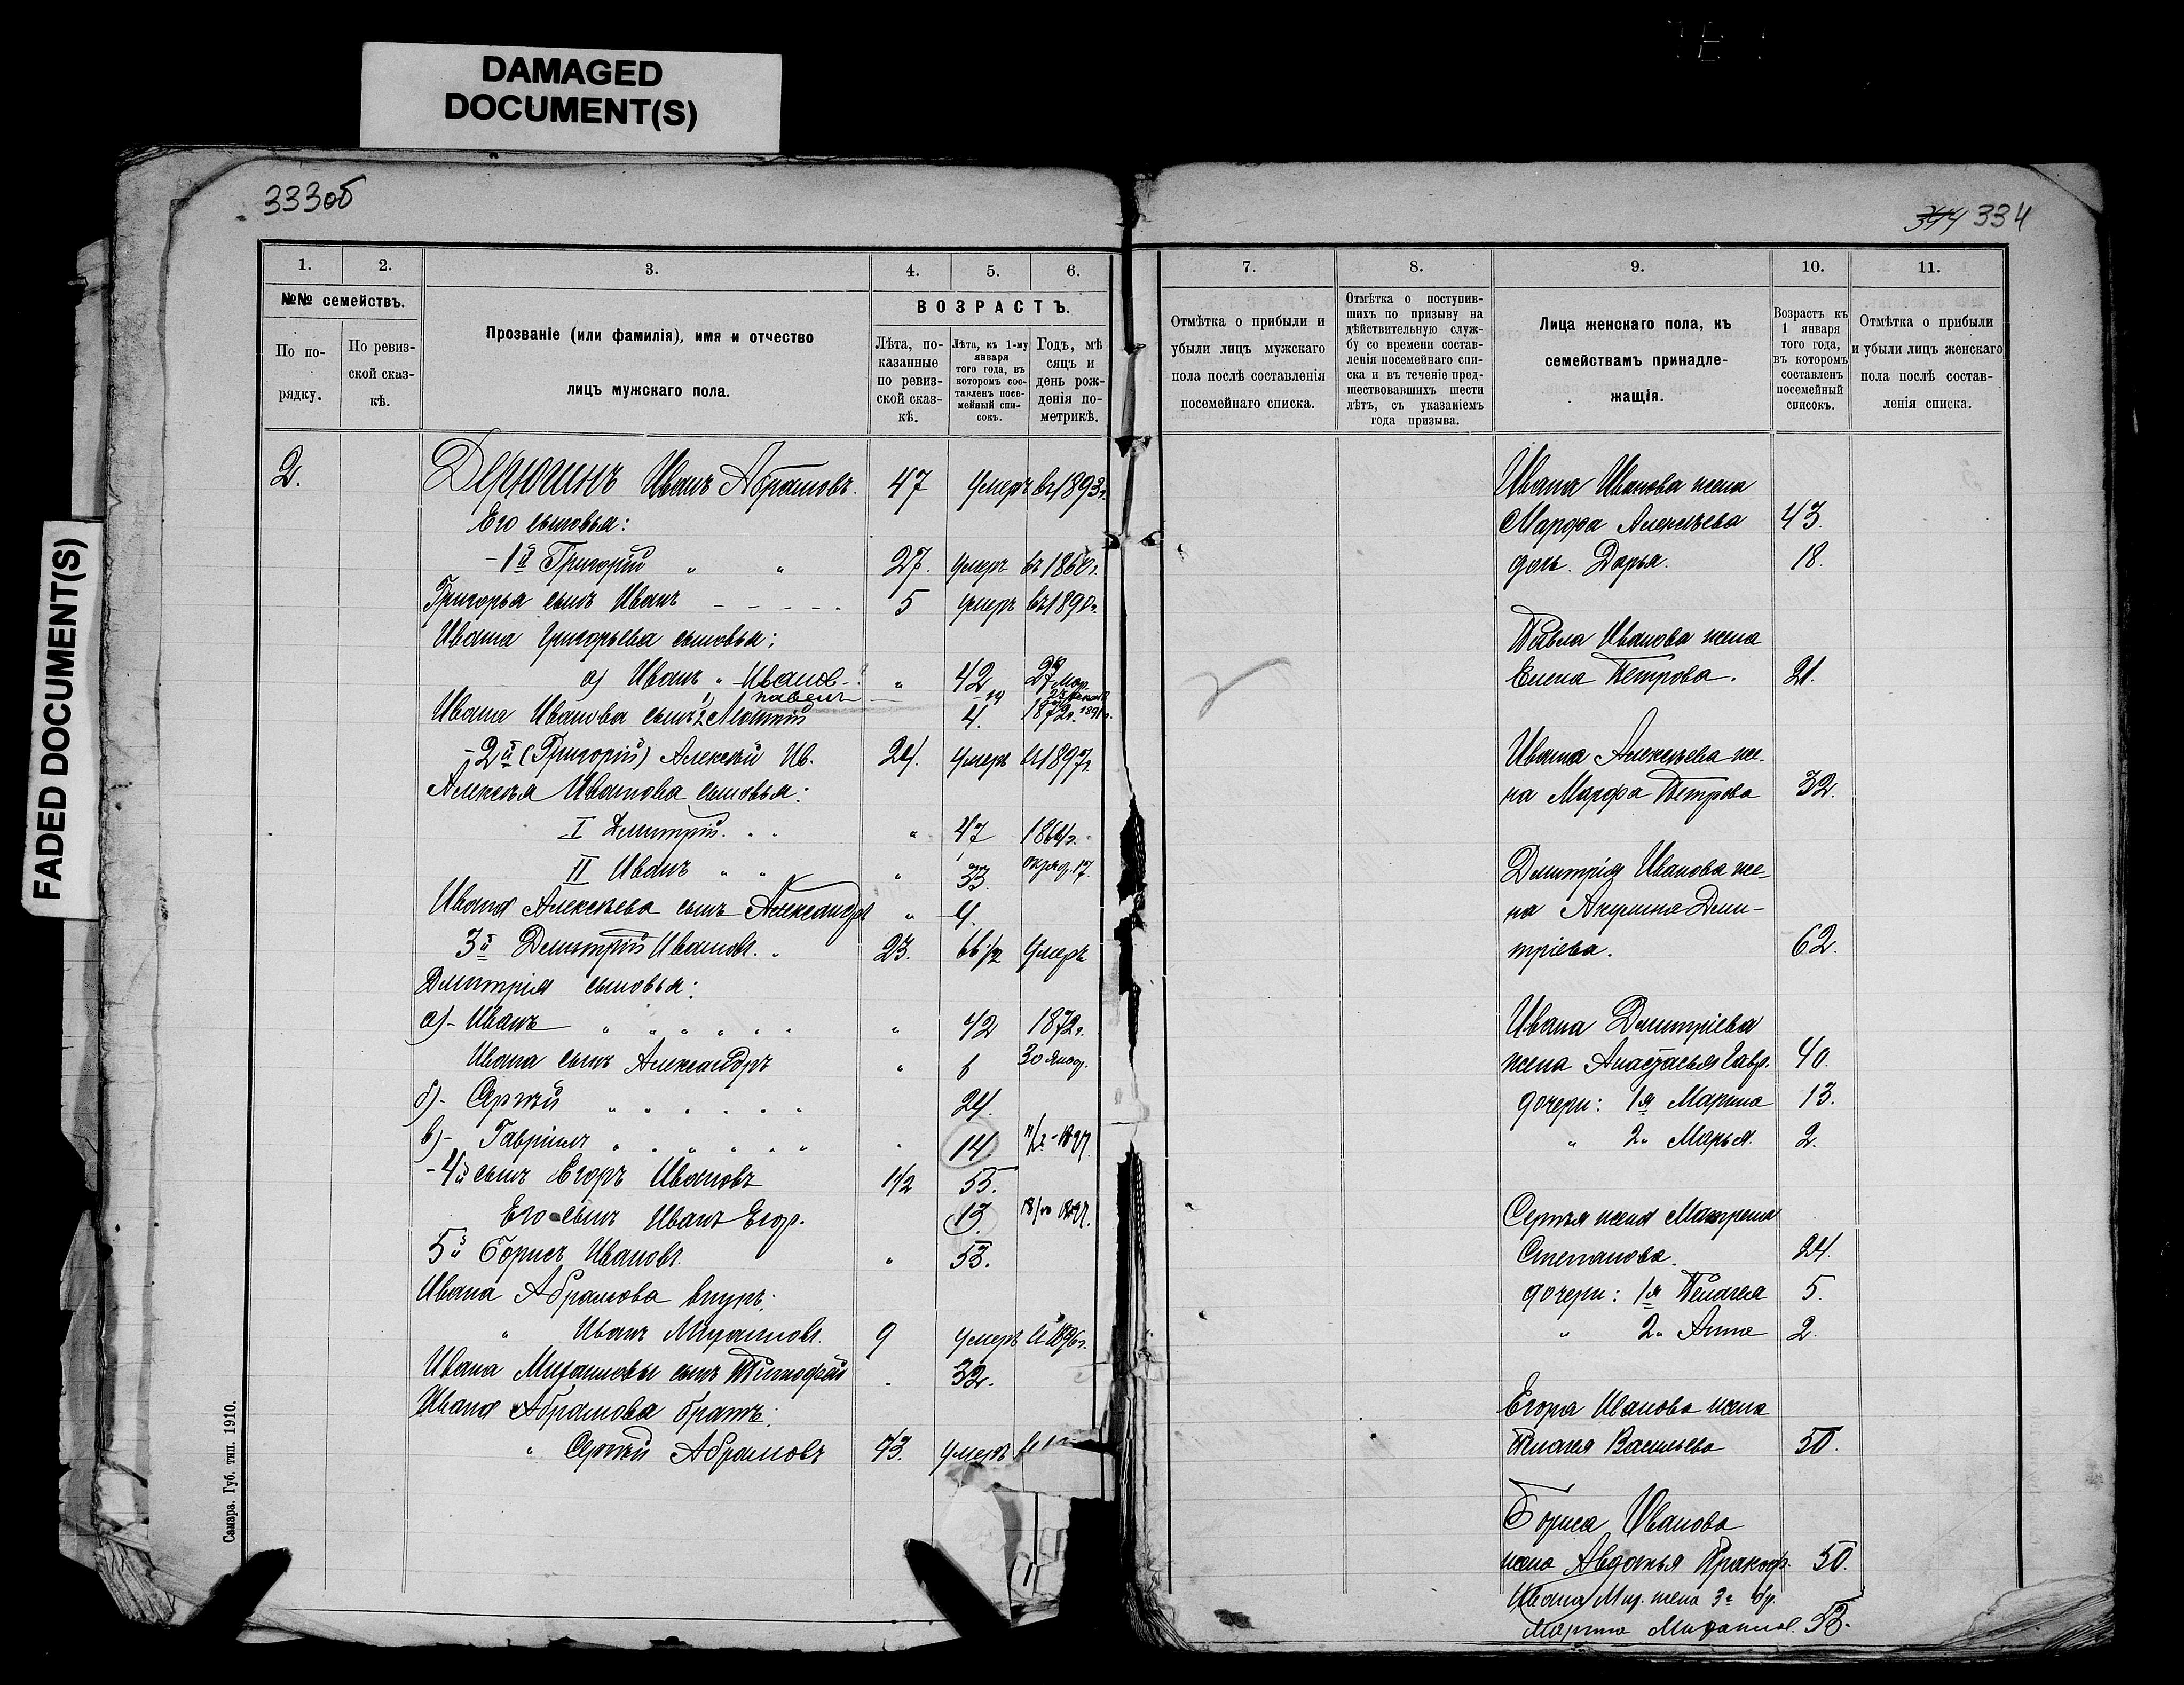 DAMAGED
DOCUMENT(S)
FADED DOCUMENT(S)
333об
1. 2. 3. 4. 5. 6.
№№ семействъ.
По по-
рядку.
По ревиз-
ской сказ-
кѣ.
Прозваніе (или фамилія), имя и отчество
лицъ мужскаго пола.
ВОЗРАСТЪ.
Лѣта, по-
казанные
по ревиз-
ской сказ-
кѣ.
Лѣта, къ 1-му
января
того года, въ
которомъ сос-
тавленъ посе-
мейный спи-
сокъ.
Годъ, мѣ
сяцъ и
день рож-
денія по-
метрикѣ.
2. Дерюгинъ Иванъ Абрамовъ. 47 Умеръ въ 1893г.
Его сыновья:
-1й Григорій " " 27. умеръ въ 1860г.
Григорья сынъ Иванъ - - - - - 5 умеръ въ 1890г.
Ивана Григорьева сыновья:
а) Иванъ " Иванов " 42 27 мар.
1) Павелъ 19
Ивана Иванова сынъ 2 4. 1872г. 1891г.
-2й (Григорій) Алексѣй Ив. 24. умеръ въ 1897г.
Алексѣя Иванова сыновья:
I Дмитрій. " " " 47 1864г.
II Иванъ " " " 33.
Ивана Алексѣева сынъ Александръ " 4.
3й Дмитрій Иванов. " 23. 66 1/2 Умеръ
Дмитрія сыновья:
а)- Иванъ " " " " " " " 42 1872г.
Ивана сынъ Александръ " 6
б)- Сергѣй " " " " " " 24.
в)- Гавріилъ " " " " " " 14
-4й сынъ Егоръ Ивановъ 1/2 55.
Его сынъ Иванъ Егор. 13
5й Борисъ Ивановъ. " 53.
Ивана Абрамова внукъ:
" Иванъ Михайловъ. 9 умеръ въ 1896г.
Ивана Михайлова сынъ Тимофей " 32.
Ивана Абрамова братъ:
" Сергѣй Абрамовъ 43. умеръ
Самара. Губ. тип. 1910.
334
7. 8. 9. 10. 11.
Отмѣтка о прибыли и
убыли лицъ мужскаго
пола послѣ составленія
посемейнаго списка.
Отмѣтка о поступив-
шихъ по призыву на
дѣйствительную служ-
бу со времени состав-
ленія посемейнаго спи-
ска и въ теченіе пред-
шествовавшихъ шести
лѣтъ, съ указаніемъ
года призыва.
Лица женскаго пола, къ
семействамъ принадле-
жащія.
Возрастъ къ
1 января
того года,
въ которомъ
составленъ
посемейный
списокъ.
Отмѣтка о прибыли
и убыли лицъ женскаго
пола послѣ состав-
ленія списка.
Ивана Иванова жена
Марфа Алексѣева 43.
дочь. Дарья. 18.
Павла Иванова жена
Елена Петрова. 21.
Ивана Алексѣева же-
на Марфа Петрова 32.
Дмитрія Иванова же-
на Акулина Дми-
тріева. 62.
Ивана Дмитріева
жена Анастасья Гавр. 40.
дочери: 1я Марина 13.
" 2я Марья. 2.
Сергѣя жена Матрена
Степанова. 24.
дочери: 1я Пелагея 5.
" 2я Анна 2.
Егора Иванова жена
Пелагея Васильева 50.
Бориса Иванова
жена Авдотья Пракоф. 50.
Ивана Мих. жена 3г бр.
Марина Михайлов. 53.